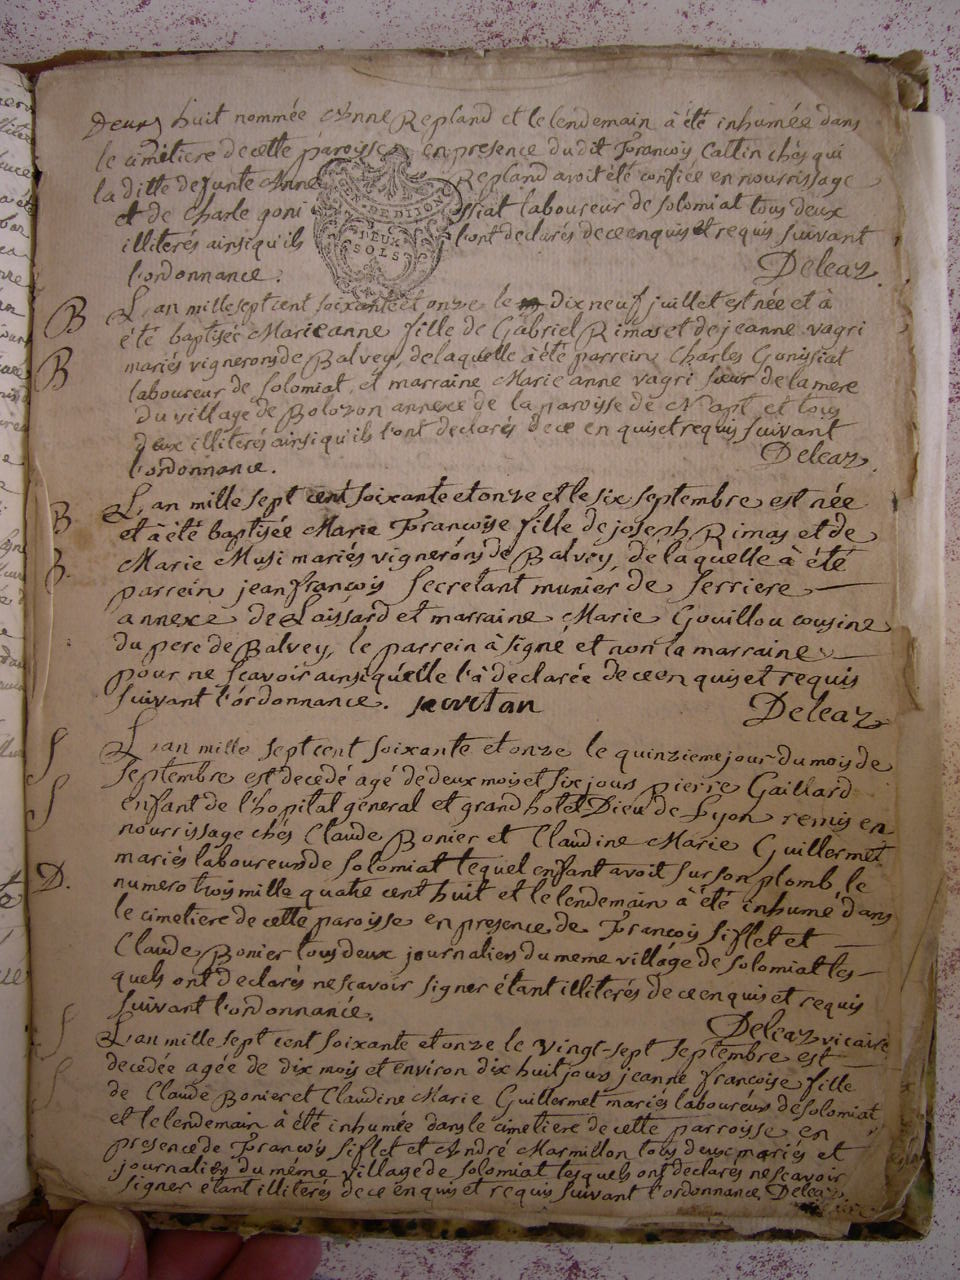 Deux huit nommée Anne Repland et le lendemain à été inhumée dans
le cimetiere de cette paroisse en presence du dit François Cattin chés qui
la ditte defunte Anne Repland avoit été confiée en nourrissage
et de Charle goni ssiat laboureur de solomiat tous deux
illiterés ainsi qu'ils l'ont declarés de ce enquis et requis suivant
l'ordonnance. Deleaz
EN DE DIJON
DEUX
SOLS
B L'an mille sept cent soixante et onze le dix neuf juillet est née et à
été baptisée Marieanne fille de Gabriel Rimas et de jeanne vagri
B mariés vignerons de Balvey, de laquelle à été parrein Charles Gonissiat
laboureur de solomiat, et marraine Marie anne vagri sœur de la mere
du village de Bolozon annexe de la paroisse de Napt et tous
deux illiterés ainsi qu'ils l'ont declarés de ce enquis et requis suivant
l'ordonnance. Deleaz
B L'an mille sept cent soixante et onze et le six septembre est née
et à été baptisée Marie Françoise fille de joseph Rimas et de
B. Marie Musi mariés vignerons de Balvey, de laquelle à été
parrein jean françois Secretant munier de Serriere
annexe de Laissard et marraine Marie Gouillou cousine
du pere de Balvey, le parrein à signé et non la marraine
pour ne scavoir ainsi qu'elle l'à declarée de ce enquis et requis
suivant l'ordonnance. secretan Deleaz
S L'an mille sept cent soixante et onze le quinzieme jour du mois de
septembre est decedé agé de deux mois et six jours pierre Gaillard
S enfant de l'hopital general et grand hotel Dieu de Lyon remis en
nourrissage chés Claude Bonier et Claudine Marie Guillermet
mariés laboureurs de solomiat lequel enfant avoit sur son plomb, le
D. numero trois mille quatre cent huit et le lendemain à été inhumé dans
le cimetiere de cette paroisse en presence de François Siflet et
Claude Bonier tous deux journaliers du meme village de solomiat les
quels ont declarés ne scavoir signer étant illiterés de ce enquis et requis
suivant l'ordonnance. Deleaz vicaire
S L'an mille sept cent soixante et onze le vingt-sept septembre est
decedée agée de dix mois et environ dix huit jours jeanne françoise fille
S de Claude Bonier et Claudine Marie Guillermet mariés laboureurs de solomiat
et le lendemain à été inhumée dans le cimetiere de cette parroisse en
presence de François Siflet et André Marmillon tous deux mariés et
journaliers du même village de solomiat lesquels ont declarés ne scavoir
signer étant illiterés de ce enquis et requis suivant l'ordonnance. Deleaz